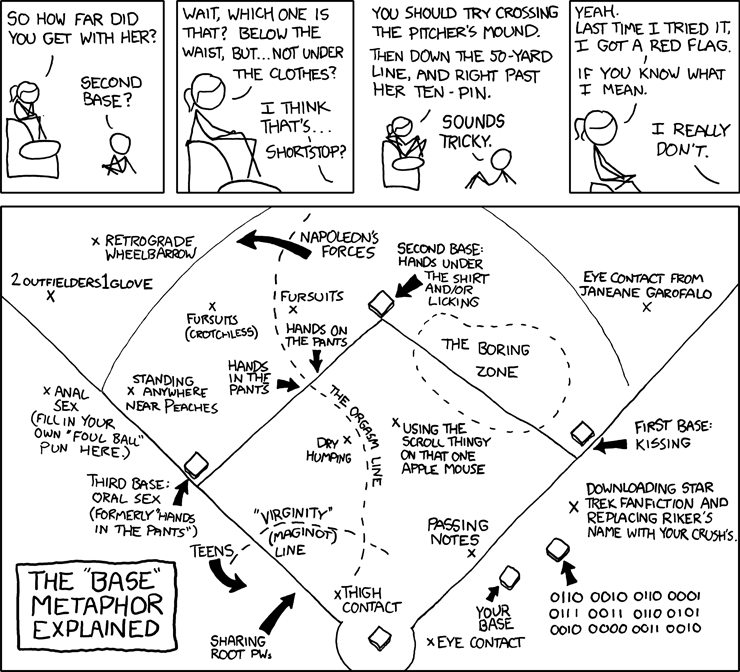 SO HOW FAR DID
YOU GET WITH HER?
SECOND
BASE?
WAIT, WHICH ONE IS
THAT? BELOW THE
WAIST, BUT...NOT UNDER
THE CLOTHES?
I THINK
THAT'S...
SHORTSTOP?
YOU SHOULD TRY CROSSING
THE PITCHER'S MOUND.
THEN DOWN THE 50-YARD
LINE, AND RIGHT PAST
HER TEN-PIN.
SOUNDS
TRICKY.
YEAH.
LAST TIME I TRIED IT,
I GOT A RED FLAG.
IF YOU KNOW WHAT
I MEAN.
I REALLY
DON'T.
x RETROGRADE
WHEELBARROW
NAPOLEON'S
FORCES
SECOND BASE:
HANDS UNDER
THE SHIRT
AND/OR
LICKING
EYE CONTACT FROM
JANEANE GAROFALO
x
2OUTFIELDERS1GLOVE
x
x
FURSUITS
(CROTCHLESS)
FURSUITS
x
HANDS ON
THE PANTS
THE BORING
ZONE
HANDS
IN THE
PANTS
STANDING
x ANYWHERE
NEAR PEACHES
x ANAL
SEX
(FILL IN YOUR
OWN "FOUL BALL"
PUN HERE.)
THE ORGASM LINE
DRY x
HUMPING
x USING THE
SCROLL THINGY
ON THAT ONE
APPLE MOUSE
FIRST BASE:
KISSING
THIRD BASE:
ORAL SEX
(FORMERLY "HANDS
IN THE PANTS")
x DOWNLOADING STAR
TREK FANFICTION AND
REPLACING RIKER'S
NAME WITH YOUR CRUSH'S.
"VIRGINITY"
(MAGINOT)
LINE
PASSING
NOTES x
TEENS
THE "BASE"
METAPHOR
EXPLAINED
x THIGH
CONTACT
YOUR
BASE
0110 0010 0110 0001
0111 0011 0110 0101
0010 0000 0011 0010
SHARING
ROOT PWs
x EYE CONTACT